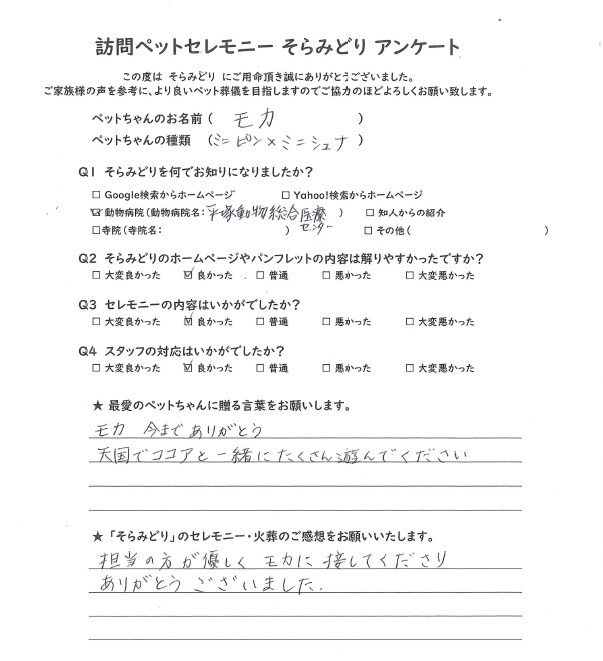 訪問ペットセレモニー そらみどり アンケート
この度は そらみどり にご用命頂き誠にありがとうございました。
ご家族様の声を参考に、より良いペット葬儀を目指しますのでご協力のほどよろしくお願い致します。
ペットちゃんのお名前 ( モカ )
ペットちゃんの種類 (ミニピン×ミニシュナ )
Q1 そらみどりを何でお知りになりましたか?
□ Google検索からホームページ □ Yahoo!検索からホームページ
☑ 動物病院(動物病院名:平塚動物総合医療 ) □ 知人からの紹介
センター
□寺院(寺院名: ) □ その他( )
Q2 そらみどりのホームページやパンフレットの内容は解りやすかったですか?
□ 大変良かった ☑ 良かった □ 普通 □ 悪かった □ 大変悪かった
Q3 セレモニーの内容はいかがでしたか?
□ 大変良かった ☑ 良かった □ 普通 □ 悪かった □ 大変悪かった
Q4 スタッフの対応はいかがでしたか?
□ 大変良かった ☑ 良かった □ 普通 □ 悪かった □ 大変悪かった
★ 最愛のペットちゃんに贈る言葉をお願いします。
モカ 今までありがとう
天国でココアと一緒にたくさん遊んでください
★「そらみどり」のセレモニー・火葬のご感想をお願いいたします。
担当の方が優しく モカに接してくださり
ありがとうございました.